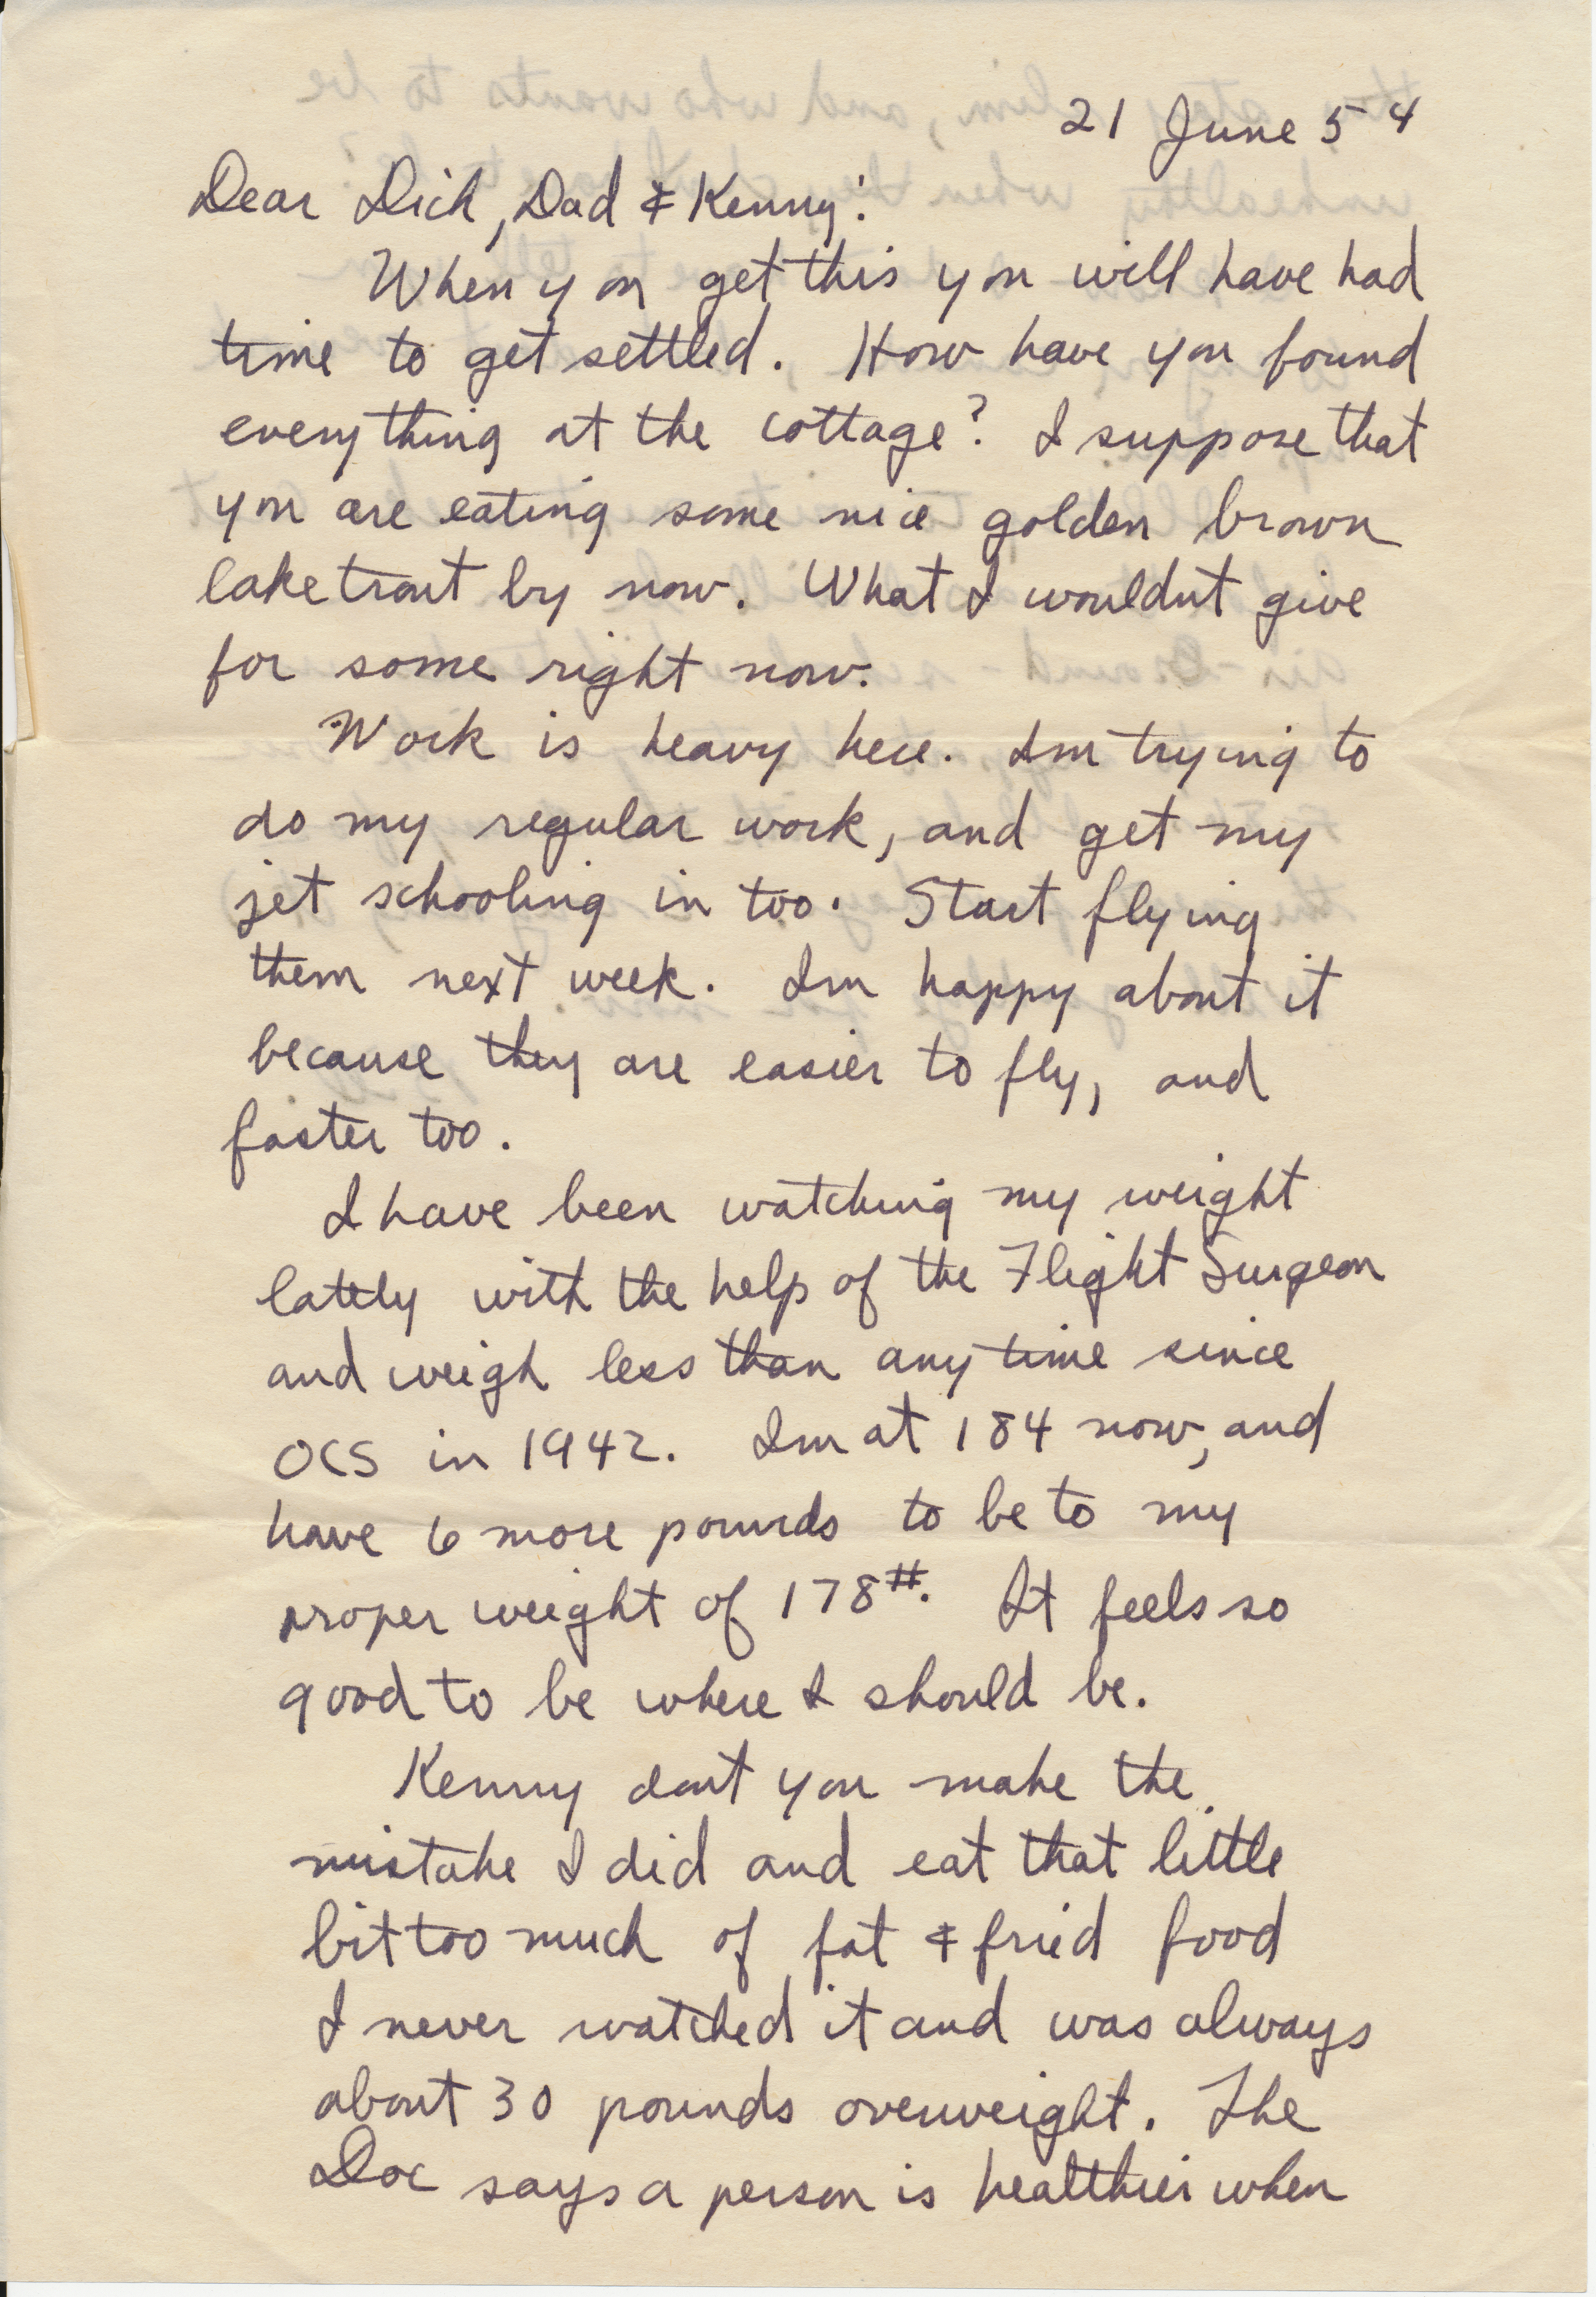 21 June 54
Dear Dick, Dad & Kenny:
When you get this you will have had
time to get settled. How have you found
everything at the cottage? I suppose that
you are eating some nice golden brown
lake trout by now. What I wouldnt give
for some right now.
Work is heavy here. Im trying to
do my regular work, and get my
jet schooling in too. Start flying
them next week. Im happy about it
because they are easier to fly, and
faster too.
I have been watching my weight
lately with the help of the Flight Surgeon
and weigh less than any time since
OCS in 1942. Im at 184 now, and
have 6 more pounds to be to my
proper weight of 178#. It feels so
good to be where I should be.
Kenny dont you make the
mistake I did and eat that little
bit too much of fat & fried food
I never watched it and was always
about 30 pounds overweight. The
Doc says a person is healthier when